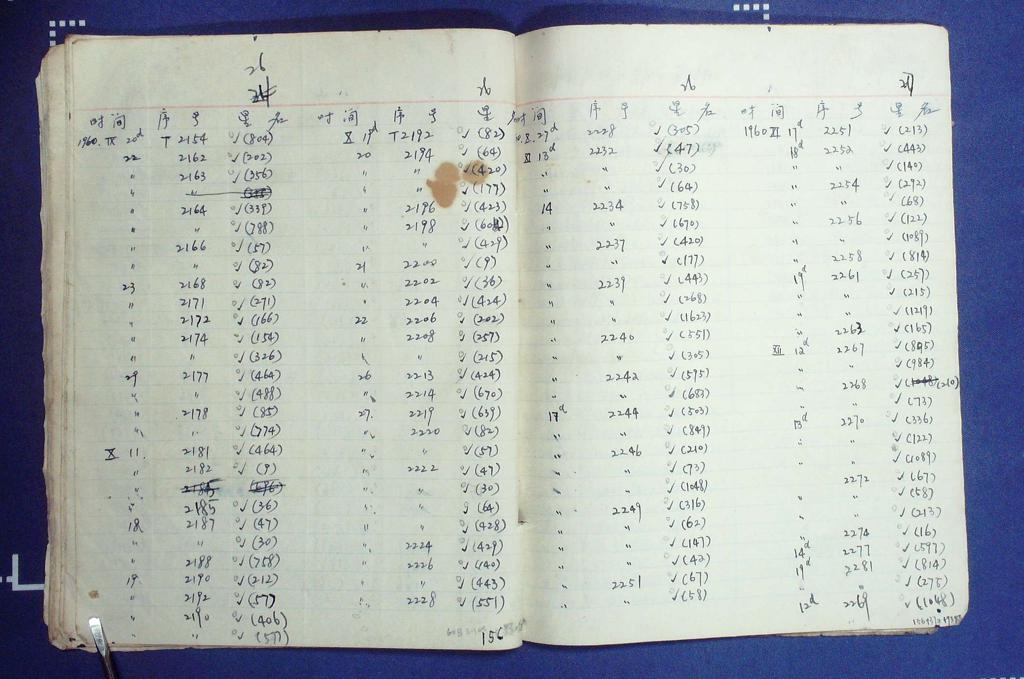 26
时间 序号 星名
1960.IX 20d T 2154 (804)
22 2162 (202)
〃 2163 (356)
〃 〃
〃 2164 (339)
〃 〃 (788)
〃 2166 (57)
〃 〃 (82)
23 2168 (82)
〃 2171 (271)
〃 2172 (166)
〃 2174 (154)
〃 〃 (326)
29 2177 (464)
〃 〃 (488)
〃 2178 (85)
〃 〃 (774)
X 11. 2181 (464)
〃 2182 (9)
〃 2185 (36)
18 2187 (47)
〃 〃 (30)
〃 2188 (758)
19 2190 (212)
〃 2192 (57)
〃 2190 (406)
〃 (57)
26
时间 序号 星名
X 19d T 2192 (82)
20 2194 (64)
〃 〃 (420)
〃 〃 (177)
〃 2196 (423)
〃 2198
〃 〃 (429)
21 2200 (9)
〃 2202 (36)
〃 2204 (424)
22 2206 (202)
〃 2208 (257)
〃 〃 (215)
26 2213 (424)
〃 2214 (670)
27. 2219 (639)
〃 2220 (82)
〃 〃 (57)
〃 2222 (47)
〃 〃 (30)
〃 〃 (64)
〃 〃 (428)
〃 2224 (429)
〃 2226 (140)
〃 〃 (443)
〃 2228 (551)
156
26
时间 序号 星名
X.27d 2228 (305)
XI 13d 2232 (47)
〃 〃 (30)
〃 〃 (64)
14 2234 (758)
〃 〃 (670)
〃 2237 (420)
〃 〃 (177)
〃 2239 (443)
〃 〃 (268)
〃 〃 (1623)
〃 2240 (551)
〃 〃 (305)
〃 2242 (595)
〃 〃 (683)
17d 2244 (503)
〃 〃 (849)
〃 2246 (210)
〃 〃 (73)
〃 〃 (1048)
〃 2249 (316)
〃 〃 (62)
〃 〃 (147)
〃 〃 (42)
〃 2251 (67)
〃 〃 (58)
时间 序号 星名
1960 XI 17d 2251 (213)
18d 2252 (443)
〃 〃 (140)
〃 2254 (292)
〃 〃 (68)
〃 2256 (122)
〃 〃 (1089)
〃 2258 (814)
19d 2261 (257)
〃 〃 (215)
〃 〃 (1219)
〃 2263 (165)
XII 12d 2267 (895)
〃 〃 (984)
〃 2268 (210)
〃 〃 (73)
13d 2270 (336)
〃 〃 (122)
〃 〃 (1089)
〃 2272 (67)
〃 〃 (58)
〃 〃 (213)
〃 2274 (16)
14d 2277 (597)
19d 2281 (814)
〃 〃 (275)
12d 2269 (1048)